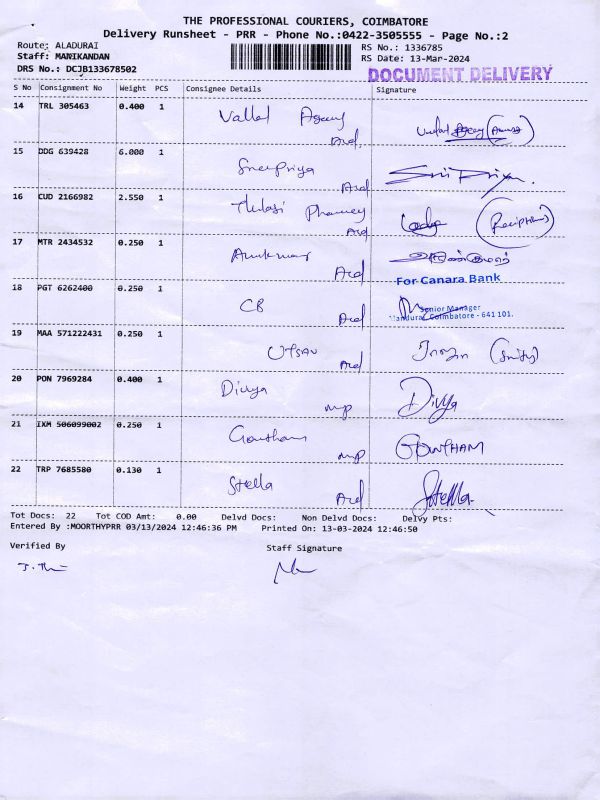 THE PROFESSIONAL COURIERS, COIMBATORE
Delivery Runsheet - PRR - Phone No.:0422-3505555 - Page No.:2
Route: ALADURAI
RS No.: 1336785
Staff: MANIKANDAN
RS Date: 13-Mar-2024
DRS No.: DCJB133678502
DOCUMENT DELIVERY
S No Consignment No Weight PCS Consignee Details Signature
14 TRL 305463 0.400 1 Vallal Agency
15 DDG 639428 6.000 1 Sreepriya Sri Priya.
16 CUD 2166982 2.550 1 Thulasi Pharmey
17 MTR 2434532 0.250 1 Arunkumar
For Canara Bank
18 PGT 6262400 0.250 1 CB
Senior Manager
Coimbatore - 641 101.
19 MAA 571222431 0.250 1 Utsav
20 PON 7969284 0.400 1 Divya MP Divya
21 IXM 506099002 0.250 1 Goutham MP GOWTHAM
22 TRP 7685580 0.130 1 Stella Stella
Tot Docs: 22 Tot COD Amt: 0.00 Delvd Docs: Non Delvd Docs: Delvy Pts:
Entered By :MOORTHYPRR 03/13/2024 12:46:36 PM Printed On: 13-03-2024 12:46:50
Verified By Staff Signature